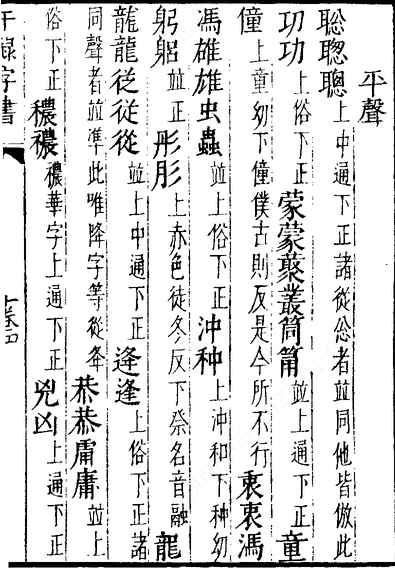 平聲
聡聦聰上中通下正諸從忩者並同他皆倣此
㓛功上俗下正蒙䝉藂叢筒筩並上通下正童
僮上童幼下僮僕古則反是今所不行衷衷馮
馮雄雄虫蟲並上俗下正沖种上沖和下种幼
躬躳並正彤肜上赤色徒冬反下祭名音融龍
龍龍従從從並上中通下正逄逢上俗下正諸
同聲者並準此唯降字等從夅恭恭庸庸並上
俗下正穠穠穠華字上通下正兇凶上通下正
干祿字書